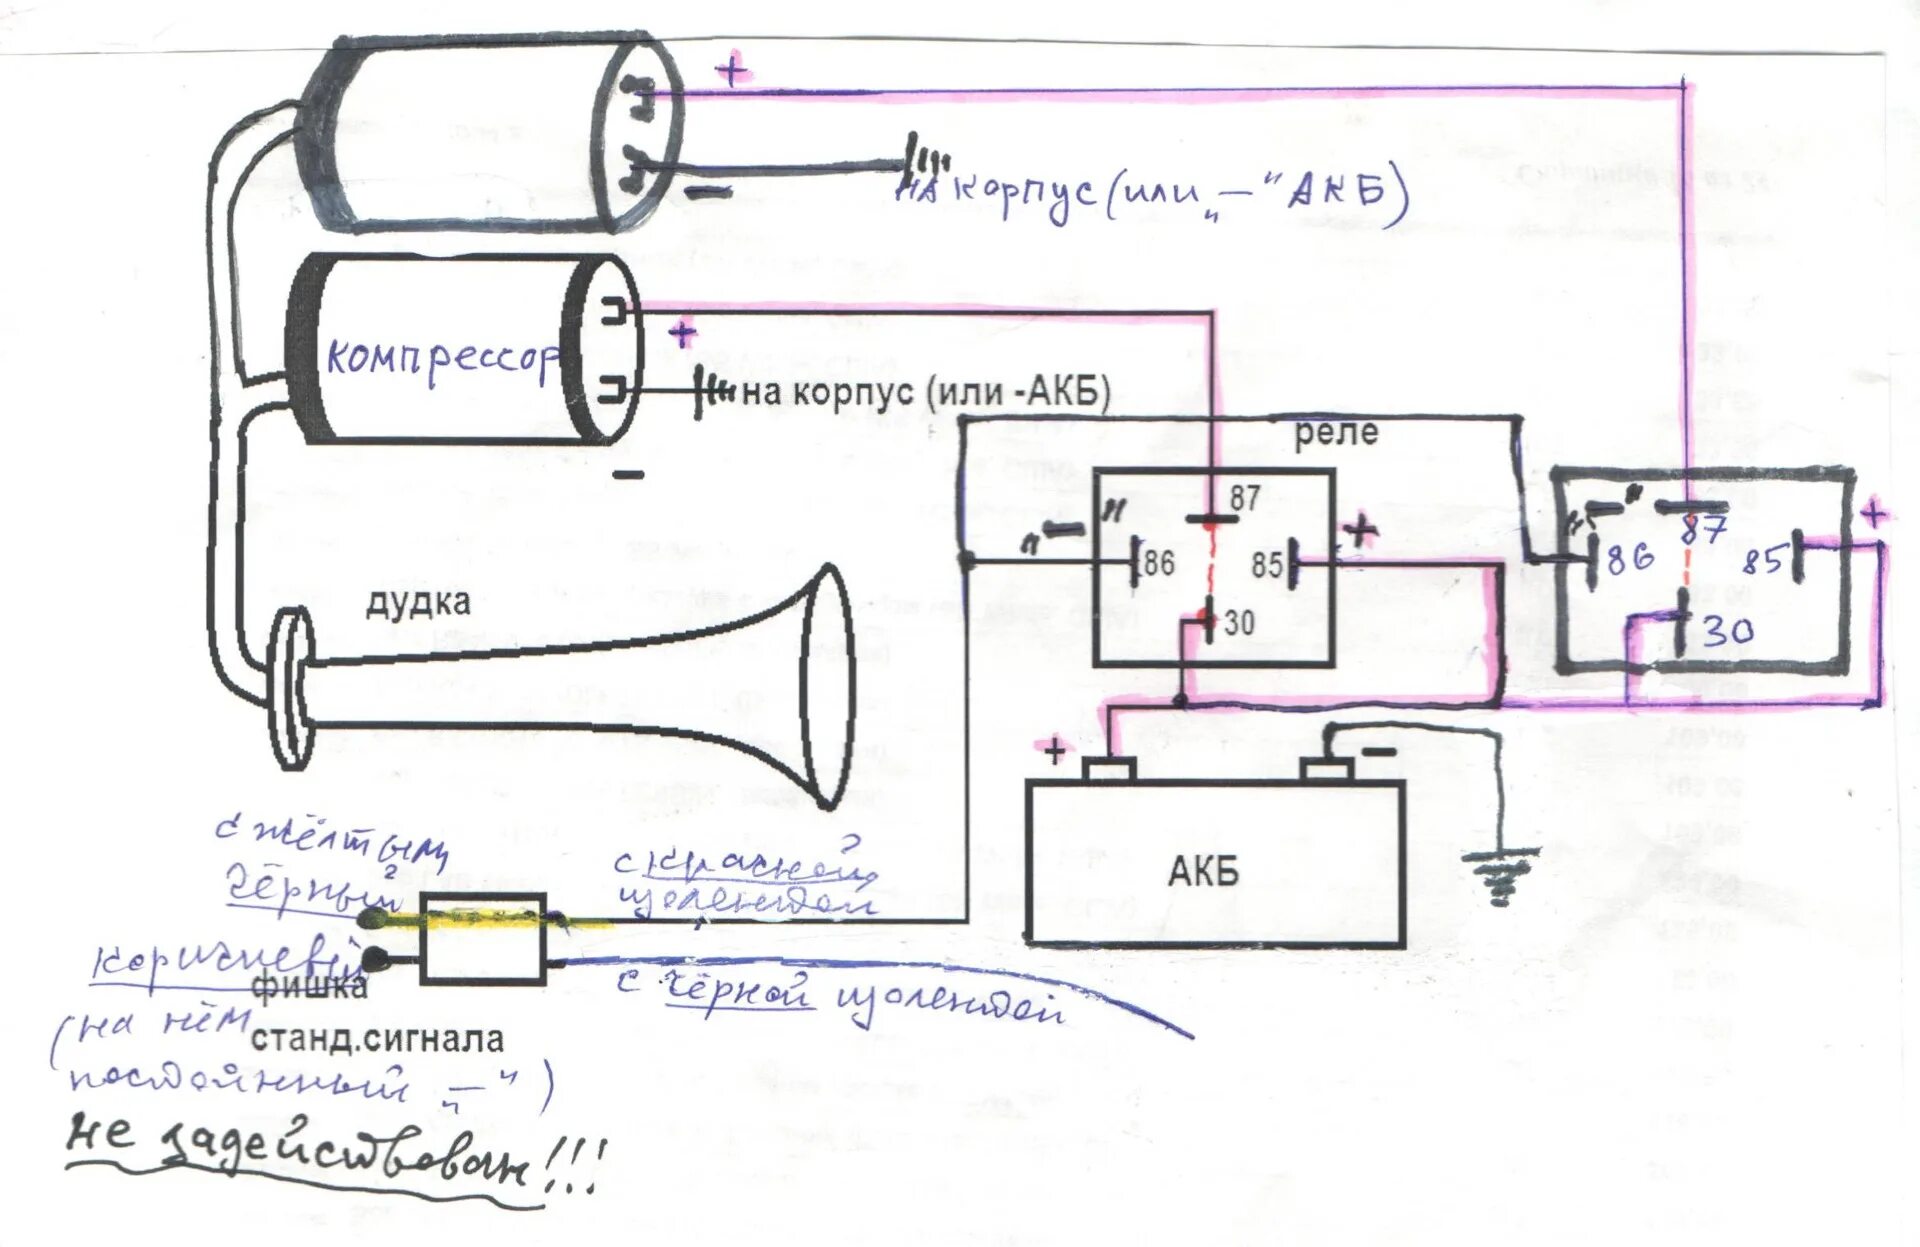 +
на корпус (или „—“ АКБ)
—
компрессор
+
на корпус (или -АКБ)
—
реле
87
„—“
86
85
+
30
„—“
87
86
85
+
30
дудка
+
—
АКБ
с жёлтым
чёрный
с красной
изолентой
коричневый
фишка
с чёрной изолентой
(на нём
станд.сигнала
постоянный „—“)
не задействован!!!